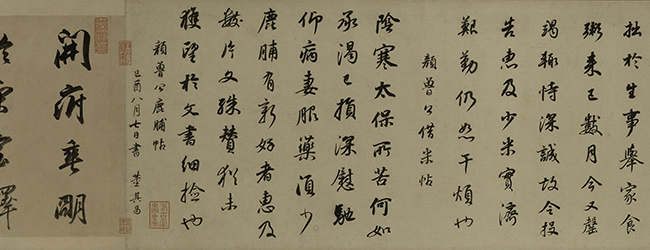 拙於生事舉家食
粥來已數月今又罄
竭輒恃深誠故令投
告惠及少米實濟
艱勤仍恕干煩也
顏魯公借米帖
陰寒太保所苦何如
承渴已損深慰馳
仰病妻服藥須少
鹿脯有新好者惠及
數片又殊贊猶未
獲望於文書細撿也
顏魯公鹿脯帖
己酉八月七日書 董其昌
開府垂明